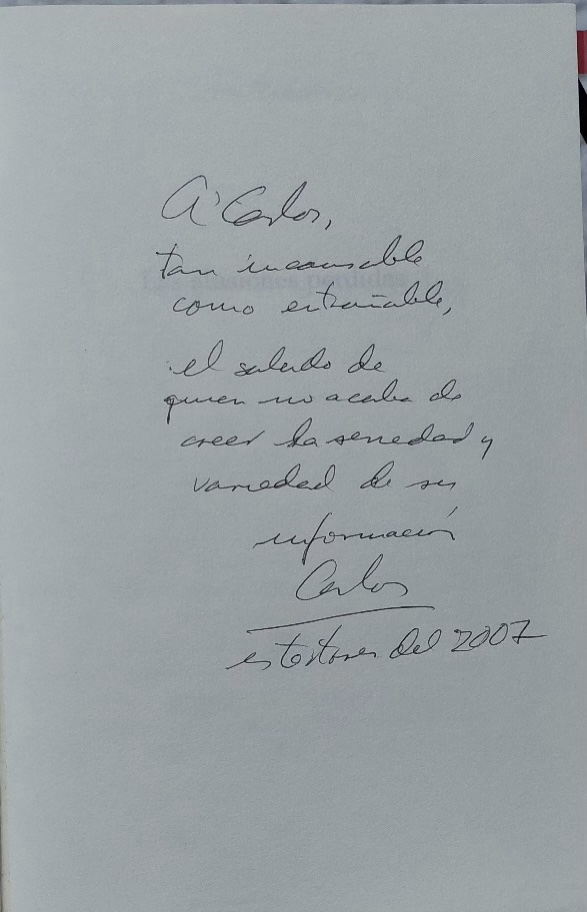 A Carlos,
tan incansable
como entrañable,
el saludo de
quien no acaba de
creer la seriedad y
variedad de su
información
Carlos
estertores del 2007